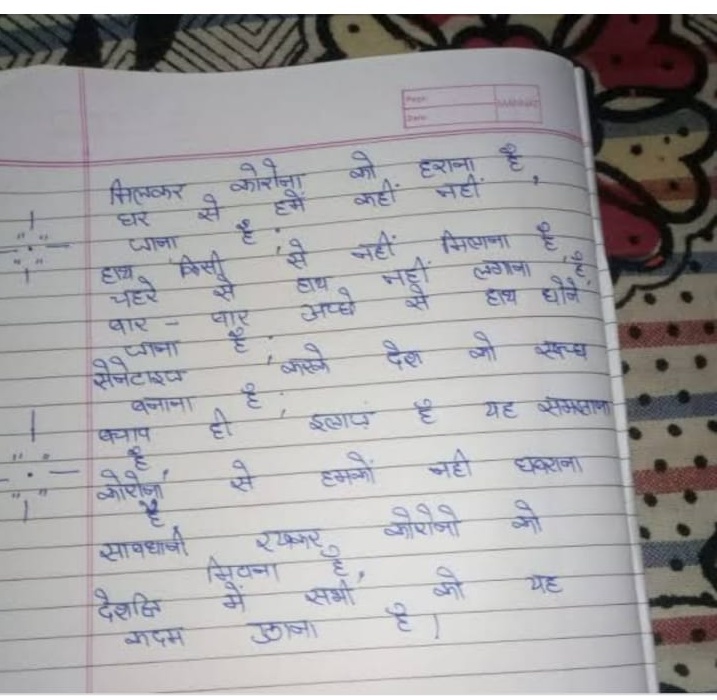 Page:
Date:
मिलकर कोरोना को हराना है,
घर से हमें कहीं नहीं
जाना है,
हाथ किसी से नहीं मिलाना है,
चहरे से हाथ नहीं लगाना है,
बार - बार अच्छे से हाथ धोने
जाना है,
सेनेटाइज करके देश को स्वच्छ
बनाना है,
बचाव ही इलाज है यह समझाना
है,
कोरोना से हमकों नही घबराना
है,
सावधानी रखकर कोरोनो को
मिटाना है,
देशहित में सभी को यह
कदम उठाना है।